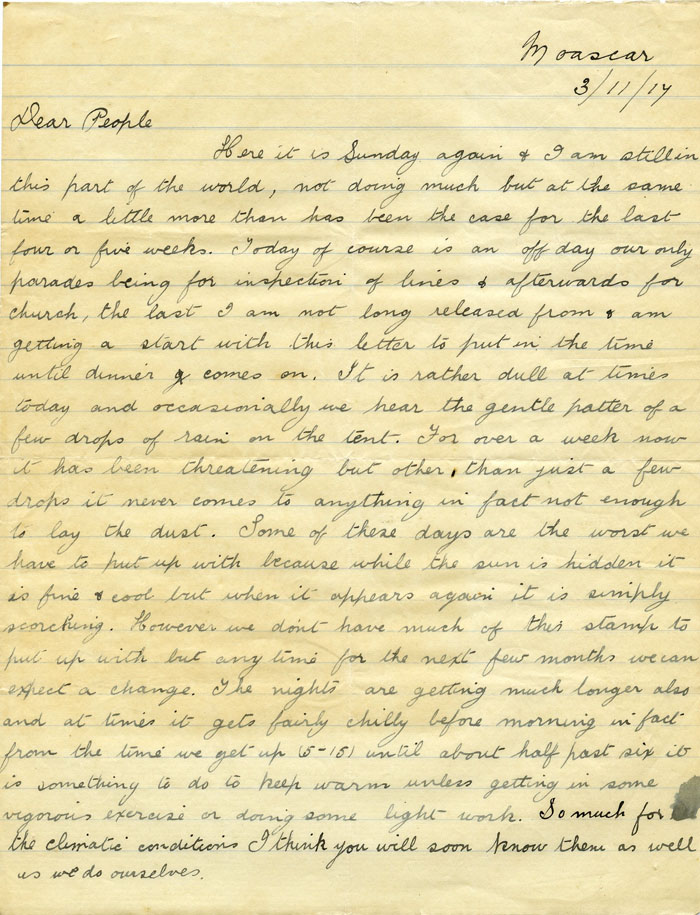 Moascar
3/11/17
Dear People
Here it is Sunday again & I am still in
this part of the world, not doing much but at the same
time a little more than has been the case for the last
four or five weeks. Today of course is an off day our only
parades being for inspection of lines & afterwards for
church, the last I am not long released from & am
getting a start with this letter to put in the time
until dinner comes on. It is rather dull at times
today and occasionally we hear the gentle patter of a
few drops of rain on the tent. For over a week now
it has been threatening but other than just a few
drops it never comes to anything in fact not enough
to lay the dust. Some of these days are the worst we
have to put up with because while the sun is hidden it
is fine & cool but when it appears again it is simply
scorching. However we dont have much of this stamp to
put up with but any time for the next few months we can
expect a change. The nights are getting much longer also
and at times it gets fairly chilly before morning in fact
from the time we get up (5-15) until about half past six it
is something to do to keep warm unless getting in some
vigorous exercise or doing some light work. So much for
the climatic conditions I think you will soon know them as well
as we do ourselves.